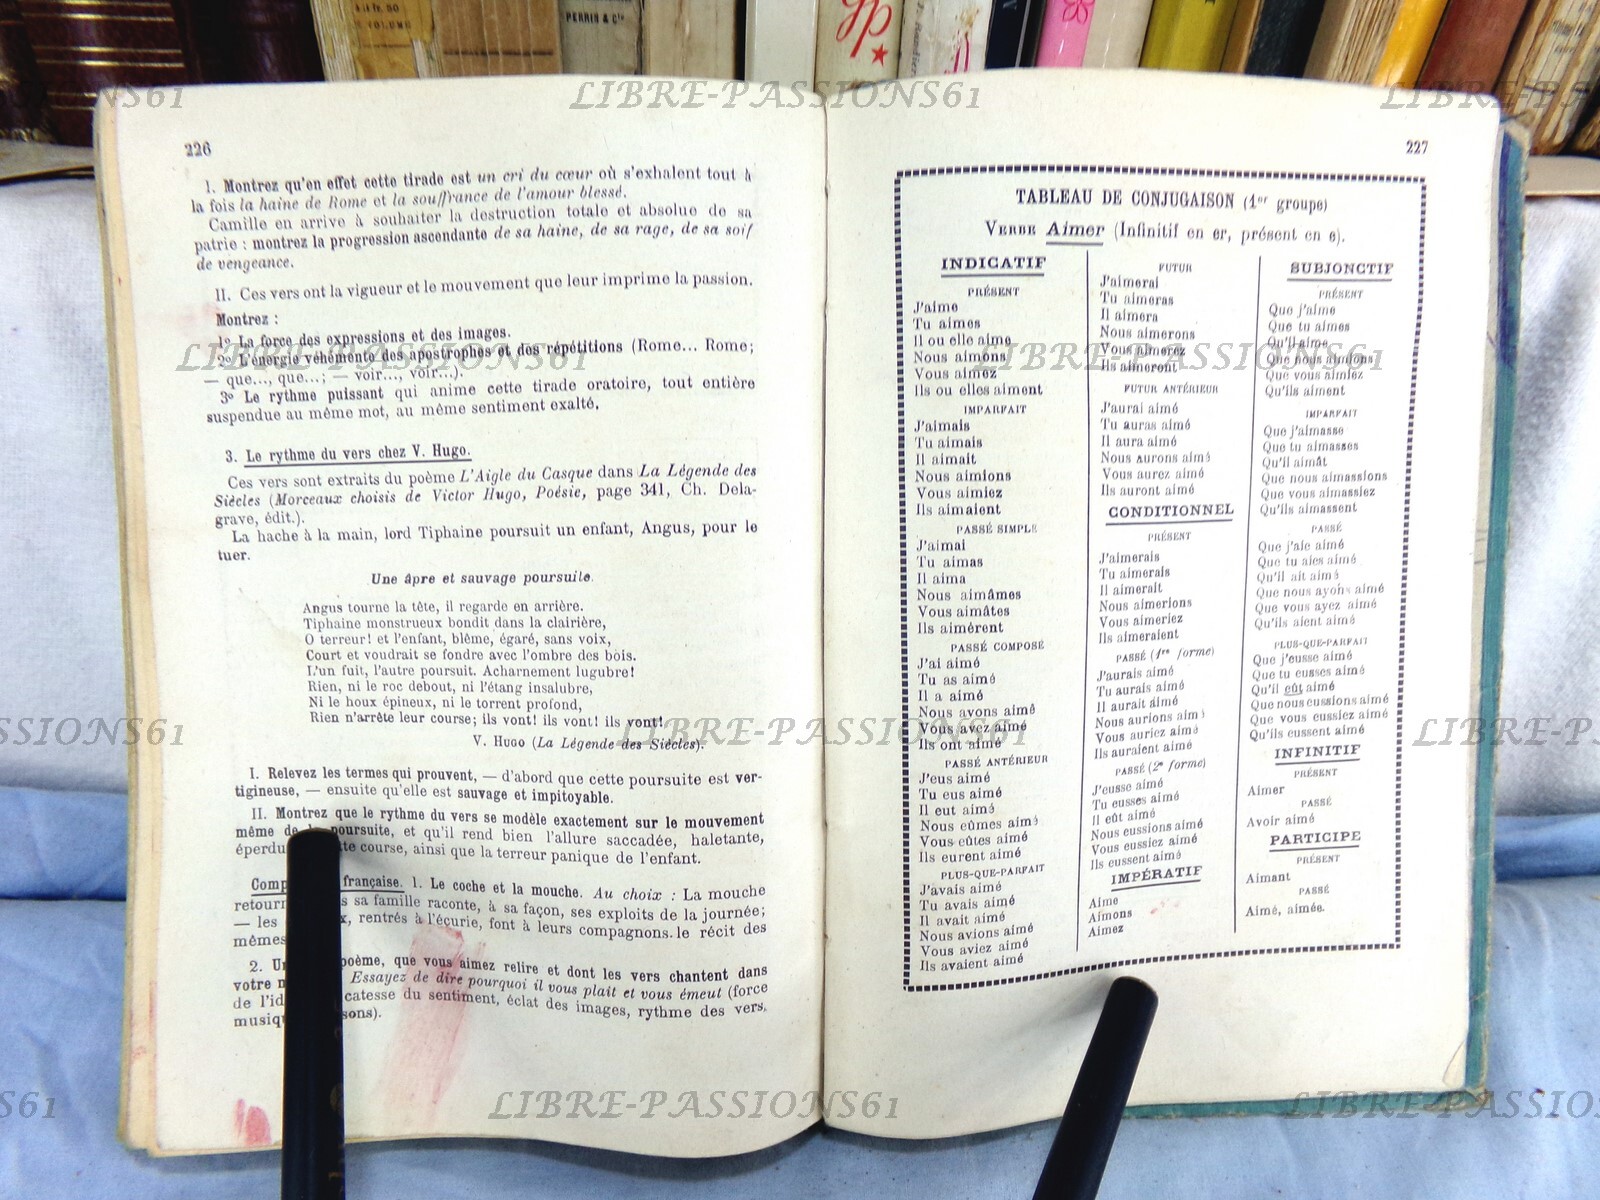 PERRIN & Cie
LIBRE-PASSIONS61
226
I. Montrez qu'en effet cette tirade est un cri du cœur où s'exhalent tout à
la fois la haine de Rome et la souffrance de l'amour blessé.
Camille en arrive à souhaiter la destruction totale et absolue de sa
patrie : montrez la progression ascendante de sa haine, de sa rage, de sa soif
de vengeance.
II. Ces vers ont la vigueur et le mouvement que leur imprime la passion.
Montrez :
1º La force des expressions et des images.
2º L'énergie véhémente des apostrophes et des répétitions (Rome... Rome;
— que..., que...; — voir..., voir...).
3º Le rythme puissant qui anime cette tirade oratoire, tout entière
suspendue au même mot, au même sentiment exalté.
3. Le rythme du vers chez V. Hugo.
Ces vers sont extraits du poème L'Aigle du Casque dans La Légende des
Siècles (Morceaux choisis de Victor Hugo, Poésie, page 341, Ch. Dela-
grave, édit.).
La hache à la main, lord Tiphaine poursuit un enfant, Angus, pour le
tuer.
Une âpre et sauvage poursuite.
Angus tourne la tête, il regarde en arrière.
Tiphaine monstrueux bondit dans la clairière,
O terreur! et l'enfant, blême, égaré, sans voix,
Court et voudrait se fondre avec l'ombre des bois.
L'un fuit, l'autre poursuit. Acharnement lugubre!
Rien, ni le roc debout, ni l'étang insalubre,
Ni le houx épineux, ni le torrent profond,
Rien n'arrête leur course; ils vont! ils vont! ils vont!
V. Hugo (La Légende des Siècles).
I. Relevez les termes qui prouvent, — d'abord que cette poursuite est ver-
tigineuse, — ensuite qu'elle est sauvage et impitoyable.
II. Montrez que le rythme du vers se modèle exactement sur le mouvement
même de la poursuite, et qu'il rend bien l'allure saccadée, haletante,
éperdu course, ainsi que la terreur panique de l'enfant.
Comp française. 1. Le coche et la mouche. Au choix : La mouche
retourn s sa famille raconte, à sa façon, ses exploits de la journée;
— les x, rentrés à l'écurie, font à leurs compagnons le récit des
mêmes
2. Un poème, que vous aimez relire et dont les vers chantent dans
votre m Essayez de dire pourquoi il vous plait et vous émeut (force
de l'id catesse du sentiment, éclat des images, rythme des vers,
musiq sons).
227
TABLEAU DE CONJUGAISON (1er groupe)
VERBE Aimer (Infinitif en er, présent en e).
INDICATIF
PRÉSENT
J'aime
Tu aimes
Il ou elle aime
Nous aimons
Vous aimez
Ils ou elles aiment
IMPARFAIT
J'aimais
Tu aimais
Il aimait
Nous aimions
Vous aimiez
Ils aimaient
PASSÉ SIMPLE
J'aimai
Tu aimas
Il aima
Nous aimâmes
Vous aimâtes
Ils aimèrent
PASSÉ COMPOSÉ
J'ai aimé
Tu as aimé
Il a aimé
Nous avons aimé
Vous avez aimé
Ils ont aimé
PASSÉ ANTÉRIEUR
J'eus aimé
Tu eus aimé
Il eut aimé
Nous eûmes aimé
Vous eûtes aimé
Ils eurent aimé
PLUS-QUE-PARFAIT
J'avais aimé
Tu avais aimé
Il avait aimé
Nous avions aimé
Vous aviez aimé
Ils avaient aimé
FUTUR
J'aimerai
Tu aimeras
Il aimera
Nous aimerons
Vous aimerez
Ils aimeront
FUTUR ANTÉRIEUR
J'aurai aimé
Tu auras aimé
Il aura aimé
Nous aurons aimé
Vous aurez aimé
Ils auront aimé
CONDITIONNEL
PRÉSENT
J'aimerais
Tu aimerais
Il aimerait
Nous aimerions
Vous aimeriez
Ils aimeraient
PASSÉ (1re forme)
J'aurais aimé
Tu aurais aimé
Il aurait aimé
Nous aurions aimé
Vous auriez aimé
Ils auraient aimé
PASSÉ (2e forme)
J'eusse aimé
Tu eusses aimé
Il eût aimé
Nous eussions aimé
Vous eussiez aimé
Ils eussent aimé
IMPÉRATIF
Aime
Aimons
Aimez
SUBJONCTIF
PRÉSENT
Que j'aime
Que tu aimes
Qu'il aime
Que nous aimions
Que vous aimiez
Qu'ils aiment
IMPARFAIT
Que j'aimasse
Que tu aimasses
Qu'il aimât
Que nous aimassions
Que vous aimassiez
Qu'ils aimassent
PASSÉ
Que j'aie aimé
Que tu aies aimé
Qu'il ait aimé
Que nous ayons aimé
Que vous ayez aimé
Qu'ils aient aimé
PLUS-QUE-PARFAIT
Que j'eusse aimé
Que tu eusses aimé
Qu'il eût aimé
Que nous eussions aimé
Que vous eussiez aimé
Qu'ils eussent aimé
INFINITIF
PRÉSENT
Aimer
PASSÉ
Avoir aimé
PARTICIPE
PRÉSENT
Aimant
PASSÉ
Aimé, aimée.